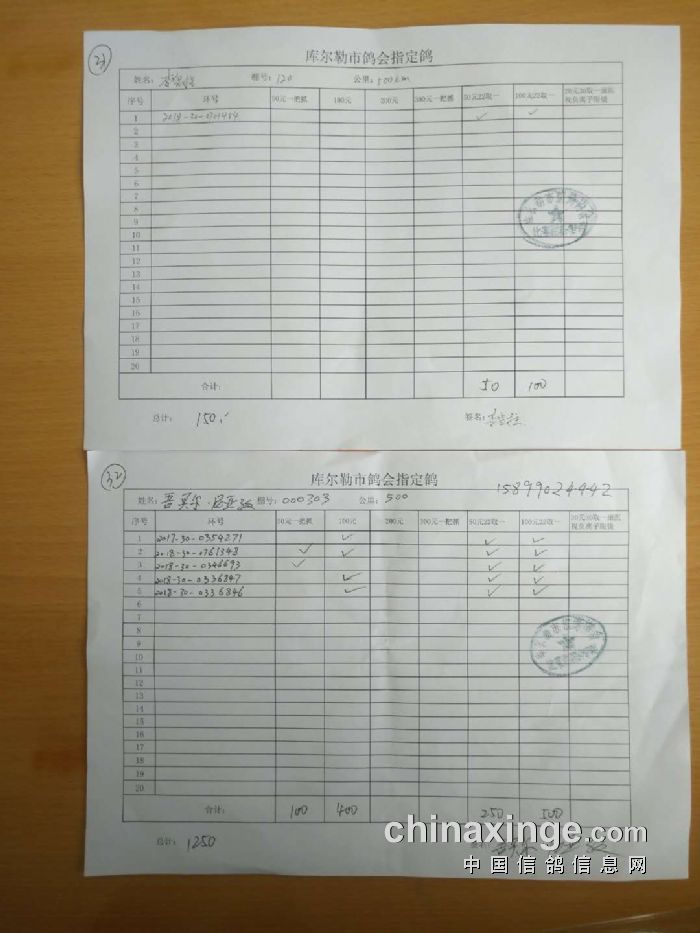 31
库尔勒市鸽会指定鸽
姓名: 棚号: 120 公里: 500km
序号 环号 50元一把抓 100元 200元 300元一把抓 50元22取一 100元22取一
1 2018-30-0301484 ✓ ✓
2
3
4
5
6
7
8
9
10
11
12
13
14
15
16
17
18
19
20
合计: 50 100
总计: 150 签名:
32
库尔勒市鸽会指定鸽
15899024442
姓名: 棚号: 000303 公里: 500
序号 环号 50元一把抓 100元 200元 300元一把抓 50元22取一 100元22取一
1 2017-30-0354271 ✓ ✓ ✓
2 2018-30-0761348 ✓ ✓ ✓ ✓
3 2018-30-0346693 ✓ ✓ ✓
4 2018-30-0336847 ✓ ✓ ✓
5 2018-30-0336846 ✓ ✓ ✓
6
7
8
9
10
11
12
13
14
15
16
17
18
19
20
合计: 100 400 250 500
总计: 1250
chinaxinge.com
中国信鸽信息网